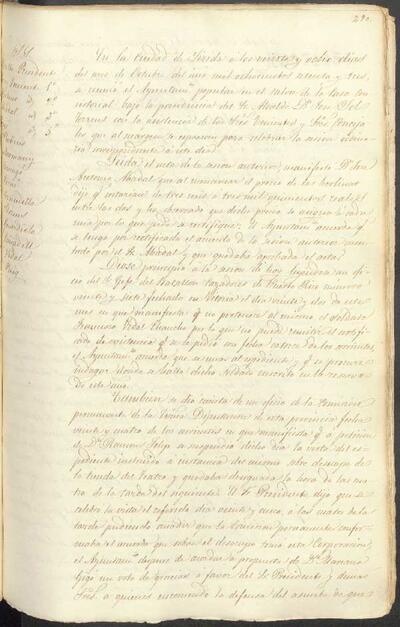 290.
En la Ciudad de Lérida a los veinte y ocho dias
del mes de Octubre del año mil ochocientos setenta y tres,
se reunió el Ayuntamto popular en el salon de la Casa con-
sistorial bajo la presidencia del Sr Alcalde Dn José Sol
Torrens con la asistencia de los Sres Tenientes y Sres Conceja
les que al margen se espresan para celebrar la sesion ordina
ria correspondiente a este dia.
Leida el acta de la sesion anterior, manifestó Dn José
Antonio Abadal que al
dijo qe costarian de tres mil a tres mil quinientos reales
entre las dos y ha observado que dicho precio se a cada
una por lo que pide se rectifique: El Ayuntamto acuerda qe
se tenga por rectificado el acuerdo de la sesion anterior
por el Sr Abadal y que quedaba aprobada el acta.
Diose principio a la sesion de hoy leyendose un ofi
cio del Sr Gefe del Batallon Cazadores de Puerto Rico numero
veinte y siete fechado en Vitoria el dia veinte y dos de este
mes en que manifiesta qe no pertenece al mismo el soldado
Francisco Vidal por lo que no puede remitir el certifi
cado de existencia qe se le pidió con fecha catorce de los corrientes,
el Ayuntamto acuerda que se una al espediente y qe se procure
indagar donde se halla dicho Soldado
de este año.
Tambien se dio cuenta de un oficio de la Comision
permanente de la Escma Diputacion de esta provincia fecha
veinte y cuatro de los corrientes en que manifiesta qe á peticion
de Dn Ramon se suspendió dicho dia la vista del es-
pediente instruido á instancia del mismo sobre desalojo de
la tienda del Teatro y quedaba designada la hora de las cua
tro de la tarde del siguiente. El Sr Presidente dijo que se
celebró la vista el referido dia veinte y cinco, á las cuatro de la
tarde pudiendo añadir que la Comision permanente confir-
maba el acuerdo que sobre el desalojo tomó esta Corporacion;
el Ayuntamto despues de acordar a propuesta de Dn Mariano
Gigo un voto de gracias á favor del Sr Presidente y demas
Sres a quienes encomendó la defensa del asunto de que